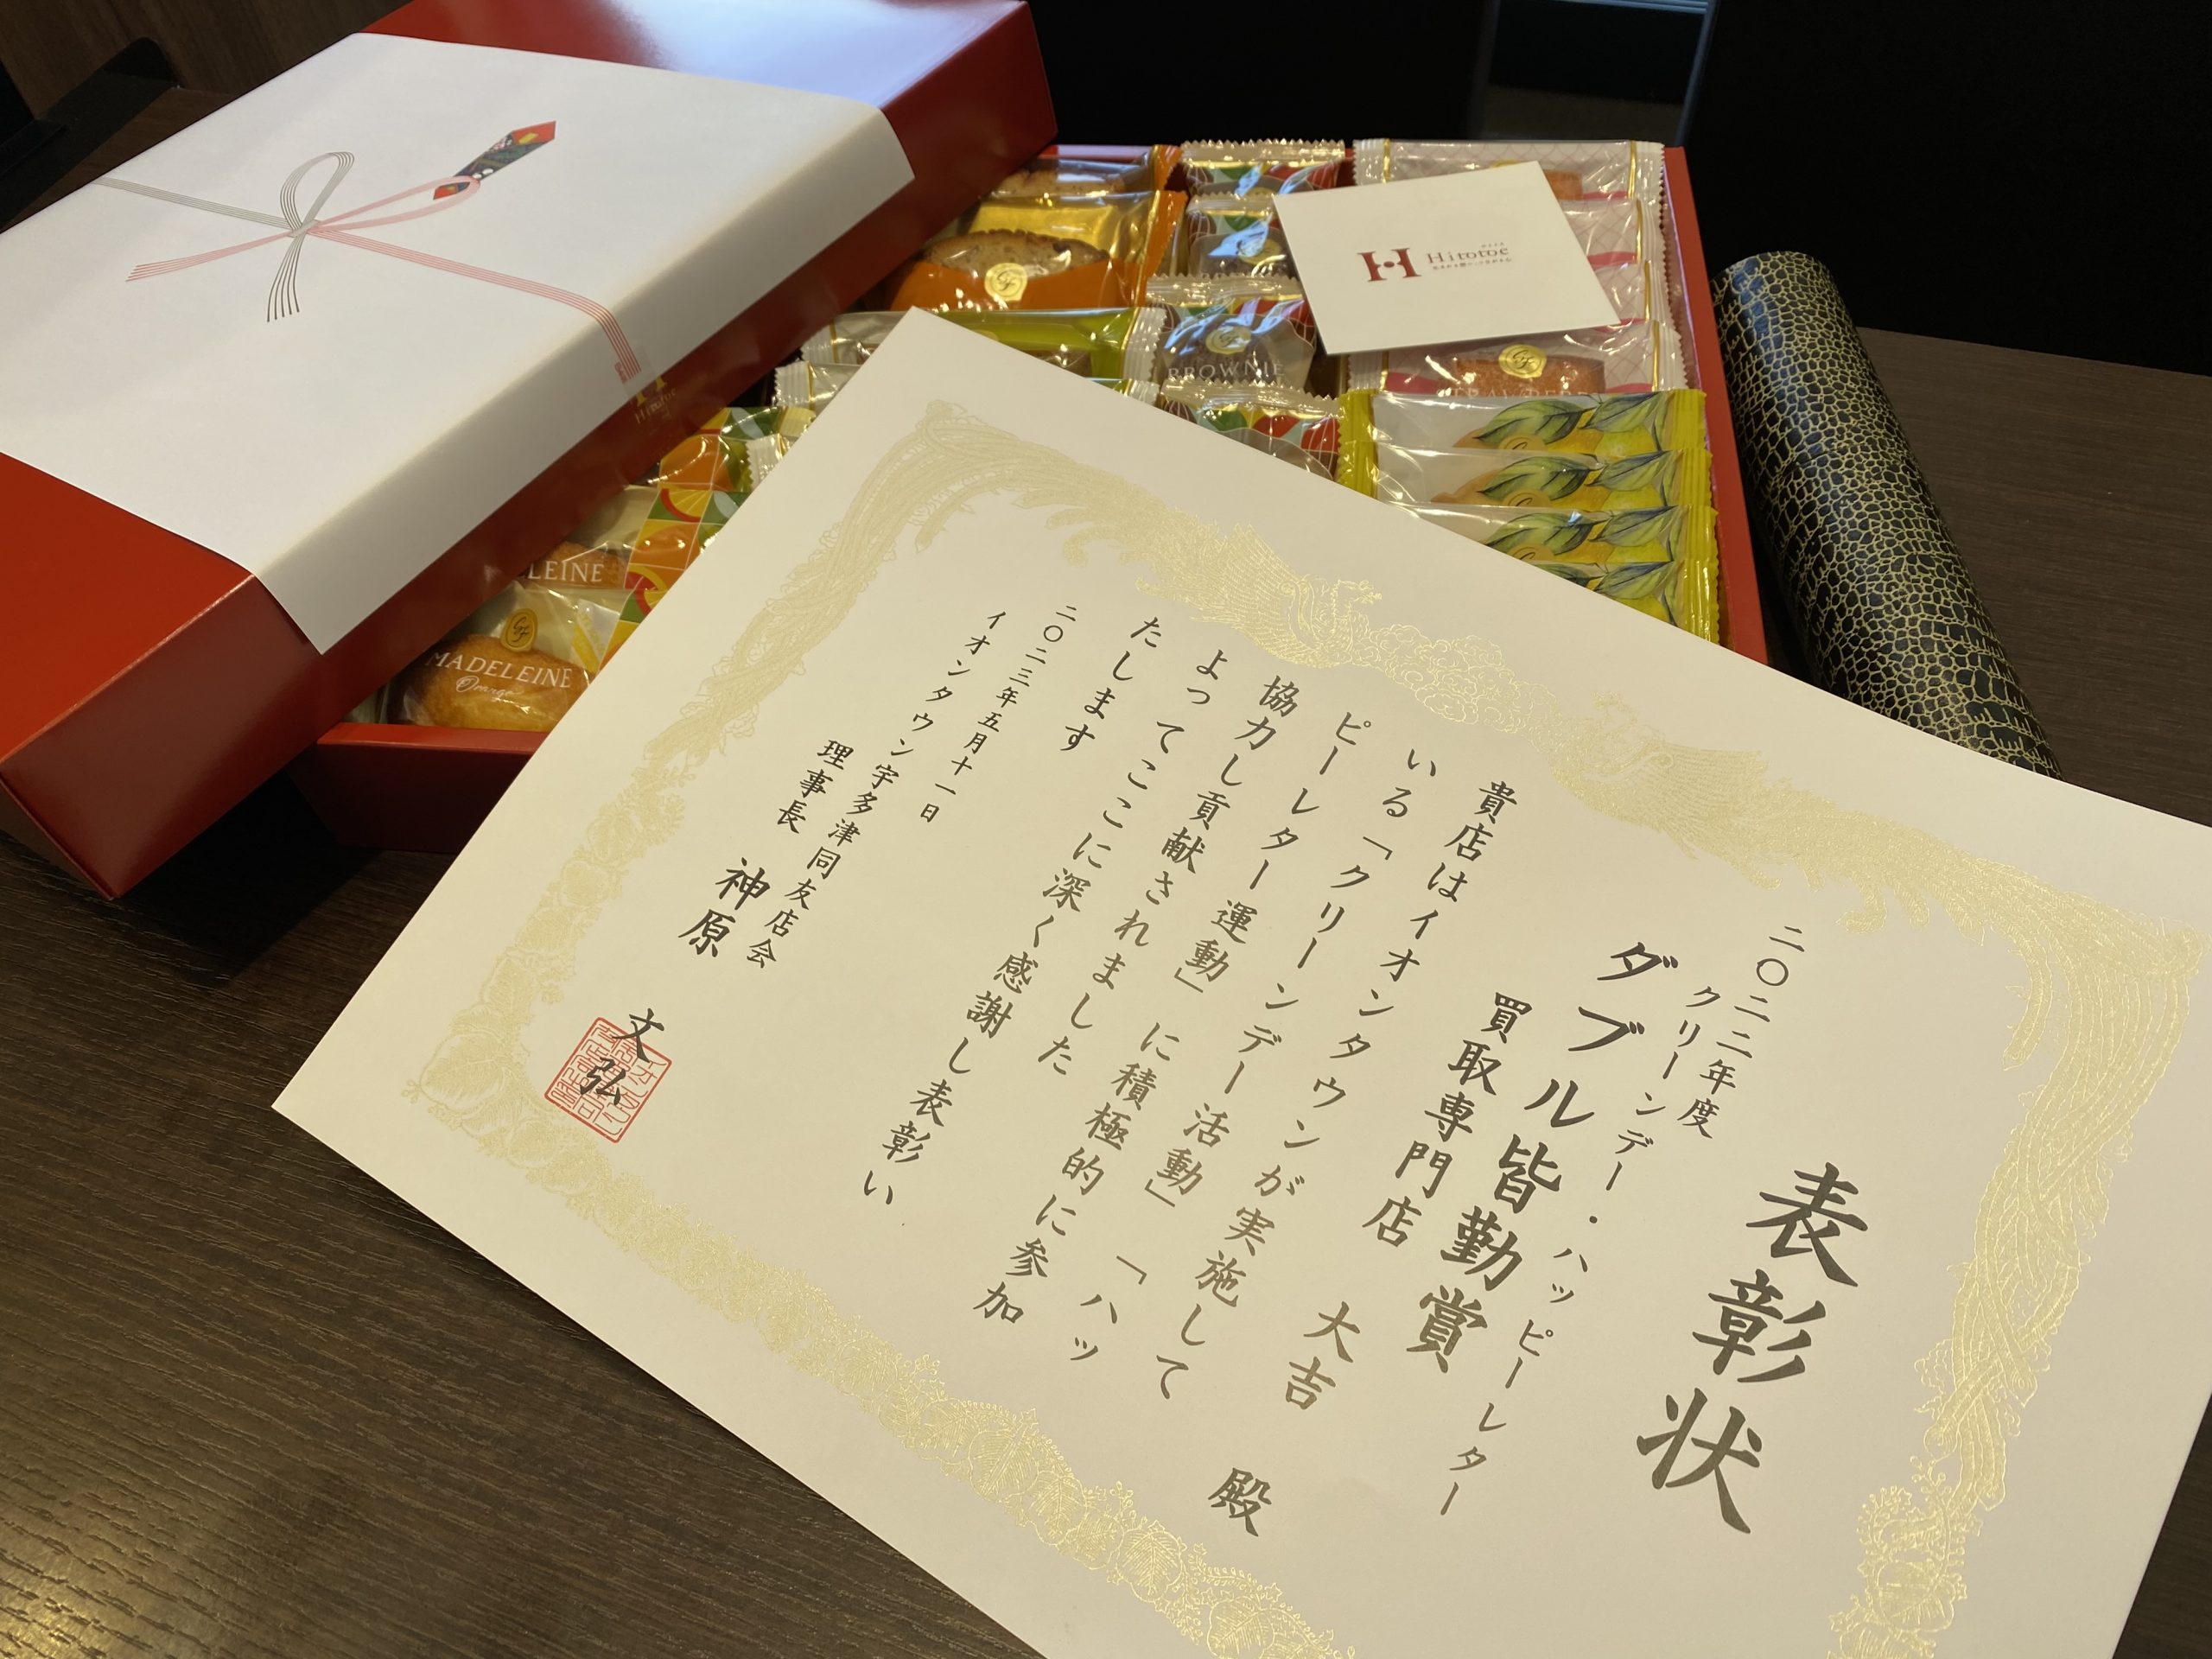 表彰状
二〇二二年度
クリーンデー・ハッピーレター
ダブル皆勤賞
買取専門店 大吉 殿
貴店はイオンタウンが実施して
いる「クリーンデー活動」「ハッ
ピーレター運動」に積極的に参加
協力し貢献されました
よってここに深く感謝し表彰い
たします
二〇二三年五月十一日
イオンタウン宇多津同友店会
理事長 神原 文弘
H Hirotoe
Hirotoe
BROWNIE
LEINE
MADELEINE
Orange